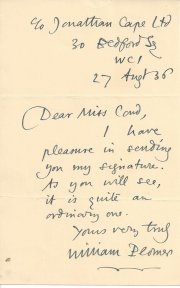 c/o Jonathan Cape Ltd
30 Bedford Sq
WC1
27 Augt 36
Dear Miss Coud,
I have
pleasure in sending
you my signature.
As you will see,
it is quite an
ordinary one.
Yours very truly
William Plomer